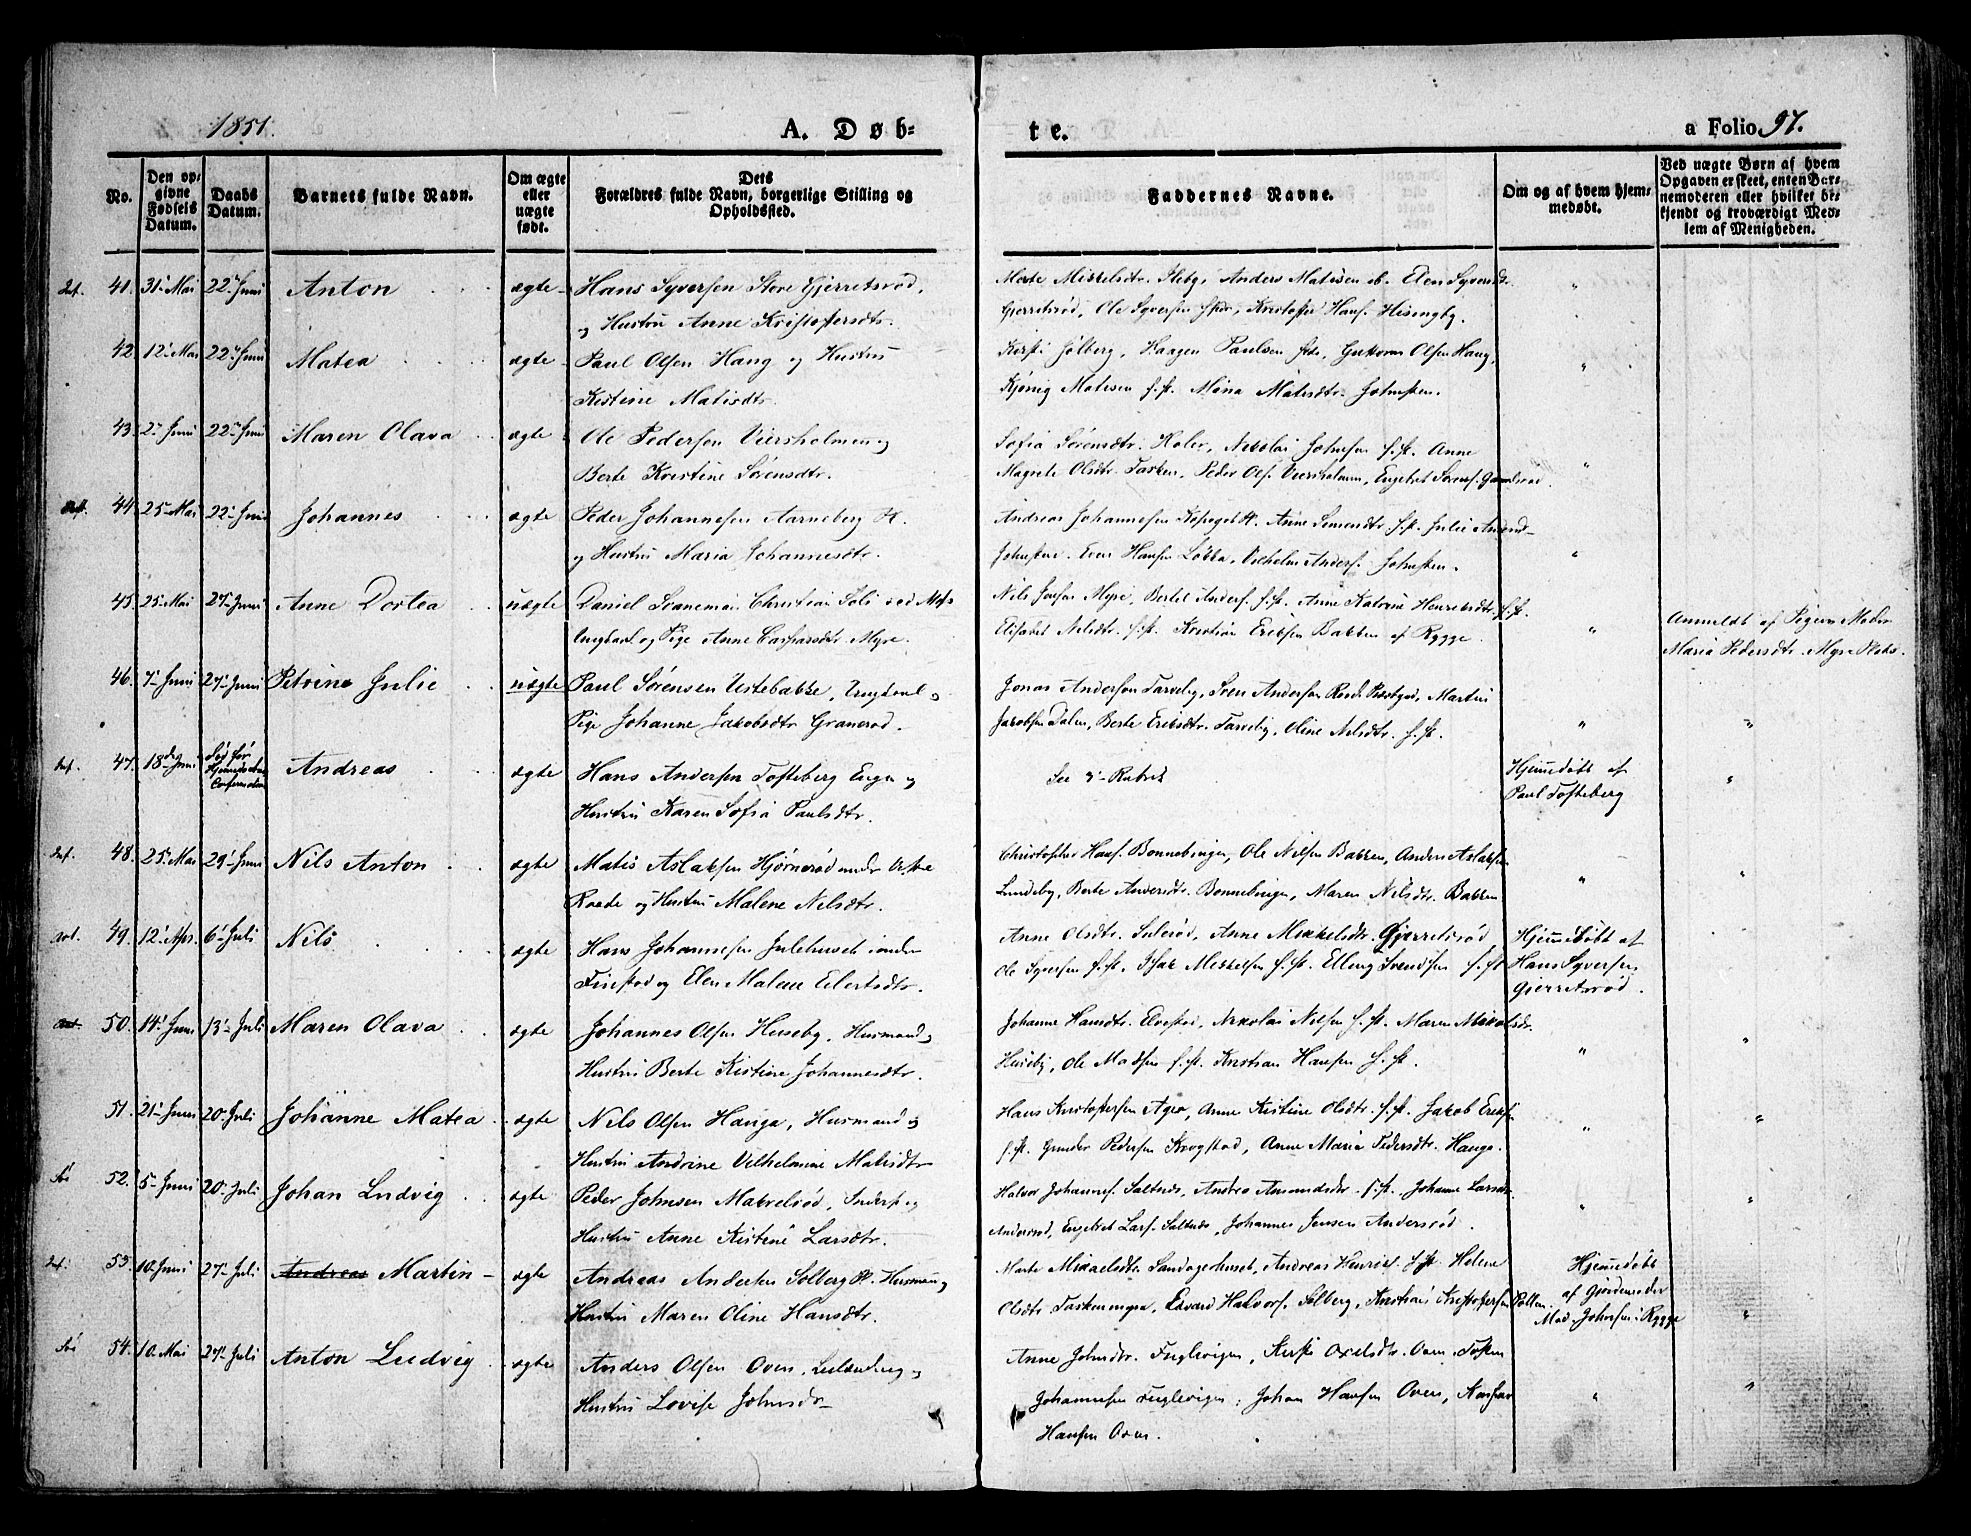 1851.
A. Døb-
te.
a Folio 97.
No.
Den op-
givne
Fødsels
Datum.
Daabs
Datum.
Barnets fulde Navn.
Om ægte
eller
uægte
født.
Dets
Forældres fulde Navn, borgerlige Stilling og
Opholdsted.
Faddernes Navne.
Om og af hvem hjem-
medøbt.
Ved uægte Børn af hvem
Opgaven er skeet, enten Bar-
nemoderen eller hvilket be-
kjendt og troværdigt Med-
lem af Menigheden.
41. 31. Mai 22. Juni Anton ægte Hans Syversen Store Gjerretsrød,
og Hustru Anne Kristoffersdtr.
Anders Matisen Elen Syversdtr.
Gjerretsrød, Ole Syversen Kristoffer Hans. Hisingby.
42 12. Mai 22. Juni Matea ægte Paul Olsen Haug og Hustru
Kistine Matisdtr.
Kirsti Solberg, Haagen Paulsen Guttorm Olsen Haug,
Matisen f. st. Maria Matisdtr.
43. 2. Juni 22. Juni Maren Olava ægte Ole Pedersen Viersholmen og
Berte Kristine Sørensdtr.
Sofia Sørensdtr. Nikolai Johnsen f. st. Anne
Magrete Olsdtr. Tasken, Peder Ols. Viersholmen, Engebret Sørens.
44. 25. Mai 22. Juni Johannes ægte Peder Johannesen Aarneberg
og Hustru Maria Johannesdtr.
Andreas Johannesen Anne Simensdtr. f. st. Julie
Even Hansen Løkka, Vilhelm Anders.
45. 25. Mai 27. Juni Anne Dortea uægte Daniel Christian Soli
Ungkarl og Pige Anne Myre.
Nils Jensen Myre, Bertel Anders. f. st. Anne Katrine Henriksdtr. f. st.
Elisabet Nilsdtr. f. st. Kristian Eriksen Bakken af Rygge.
Anmeldt af Pigens Moder
Maria Pedersdtr. Myre
46. 7. Juni 27. Juni Petrine Julie uægte Paul Sørensen Vestebakke, Ungkarl og
Pige Johanne Jakobsdtr Granerød.
Jonas Andersen Tarvebig, Sven Andersen Martin
Jakobsen Dalen, Berte Eriksdtr. Tarvebig, Oline Nilsdtr. f. st.
47. 18. Juni Død før
Andreas ægte Hans Andersen Tofteberg Enge og
Hustru Karen Sofia Paulsdtr.
See
Hjemmedøbt af
Paul Tofteberg
48. 25. Mai 29. Juni Nils Anton ægte Matis Aslaksen Hjørnerød under
Raade og Hustru Malene Nilsdtr.
Christopher Hans. Bonnebingen, Ole Nilsen Bakken, Anders Aslaksen
Lundeby, Berte Andersdtr. Bonnebingen, Maren Nilsdtr. Bakken
49. 12. Apr. 6. Juli Nils ægte Hans Johannesen Julehuset under
Finstad og Elen Malene Eilertsdtr.
Anne Olsdtr. Sulerød, Anne Mikkelsdtr. Gjerretsrød
Ole Syversen f. st. Isak Mikkelsen f. st. Elling Svendsen f. st
Hjemmedøbt af
Hans Syversen
Gjerretsrød.
50. 14. Juni 13. Juli Maren Olava ægte Johannes Olsen Huseby, Husmand og
Hustru Berte Kistine Johannesdtr.
Johanne Hansdtr. Elvestad, Nikolai Nilsen f. st. Maren
Huseby, Ole Madsen f. st. Kristian Hansen f. st.
51. 21. Juni 20. Juli Johanne Matea ægte Nils Olsen Hauga, Husmand og
Hustru Andrine Vilhelmine Matisdtr
Hans Kristoffersen Anne Kistine Olsdtr. f. st. Jakob Eriksen
f. st. Gunder Pedersen Krogstad, Anne Maria Pedersdtr. Hauga.
52. 5. Juni 20. Juli Johan Ludvig ægte Peder Johnsen Makrelrød, og
Hustru Anne Kistine Larsdtr.
Halvor Johannes. Saltnes, Andrea Amundsdtr. f. st. Johanne Larsdtr.
Andersrød, Engebret Lars. Saltnes, Johannes Jensen Andersrød.
53. 10. Juni 27. Juli Andreas Martin ægte Andreas Andersen Solberg Husmand og
Hustru Maren Oline Hansdtr.
Marte Mikkelsdtr. Andreas Henriks. f. st. Helene
Olsdtr. Edvard Halvors. Solberg, Kristian Kristoffersen
Hjemmedøbt
af Gjordemoder
Johnsen i Rygge
54. 10. Mai 27. Juli Anton Ludvig ægte Anders Olsen Oven, og
Hustru Lovise Johnsdr
Anne Johnsdtr. Fuglevigen, Kirsti Oxelsdtr. Oven
Johannesen Fuglevigen, Johan Hansen Oven,
Hansen Oven.